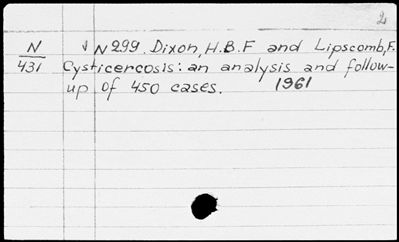 2
N ↓ N299. Dixon, H.B.F and Lipscomb, F.
431 Cysticercosis: an analysis and follow-
up of 450 cases. 1961